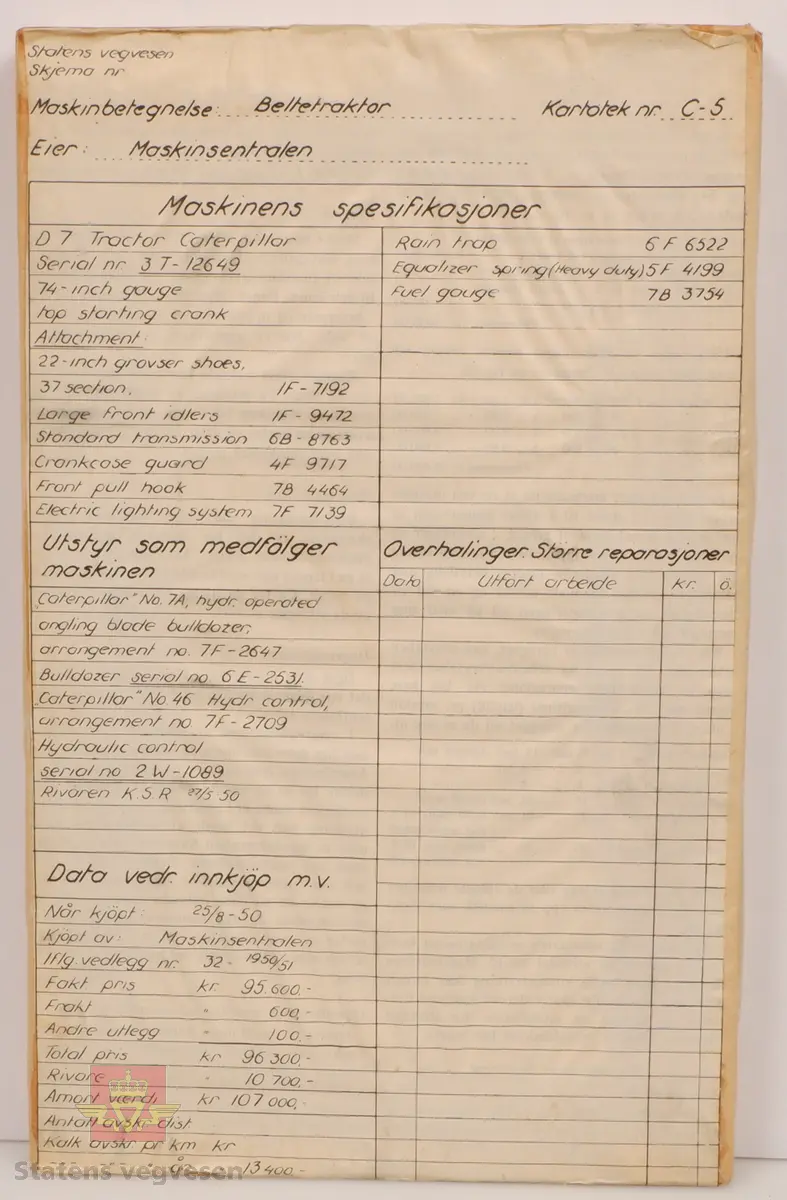 Statens vegvesen
Skjema nr
Maskinbetegnelse: Beltetraktor Kartotek nr. C-5
Eier: Maskinsentralen
Maskinens spesifikasjoner
D 7 Tractor Caterpillar
Serial nr 3 T-12649
74-inch gauge
top starting crank
Attachment:
22-inch grovser shoes,
37 section, 1F-7192
Large front idlers 1F-9472
Standard transmission 6B-8763
Crankcase guard 4F 9717
Front pull hook 7B 4464
Electric lighting system 7F 7139
Rain trap 6 F 6522
Equalizer spring (Heavy duty) 5F 4199
Fuel gauge 7B 3754
Utstyr som medfölger
maskinen
„Caterpillar" No. 7A, hydr. operated
angling blade bulldozer,
arrangement no. 7F-2647
Bulldozer serial no. 6E-2531.
„Caterpillar" No 46 Hydr control,
arrangement no. 7F-2709
Hydraulic control
serial no 2W-1089
Rivaren K.S.R 27/5 50
Overhalinger. Större reparasjoner
Dato Utfört arbeide kr. ö.
Data vedr. innkjöp m.v.
Når kjöpt: 25/8-50
Kjöpt av: Maskinsentralen
Iflg. vedlegg nr. 32- 1950/51
Fakt pris kr. 95.600.-
Frakt " 600,-
Andre utlegg " 100.-
Total pris kr 96 300,-
Rivare " 10 700.-
Amort værdi kr 107 000,-
Antatt avskr. dist
Kalk avskr. pr km kr
år 13 400.-
Statens vegvesen